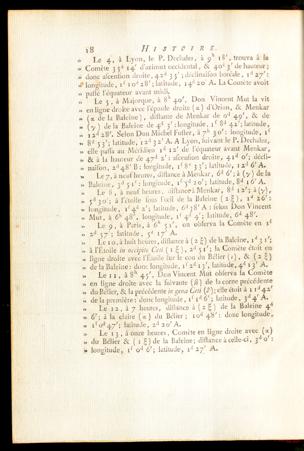 18 HISTOIRE.
„ Le 4, à Lyon, le P. Dechales, à 9h 18′, trouva à la
„ Comète 35d 14′ d'azimut occidental, & 40d 3′ de hauteur;
„ donc ascension droite, 42d 35′; déclinaison boréale, 1d 27′:
„ longitude, 1f 10d 28′; latitude, 14d 20′ A. La Comète avoit
„ passé l'équateur avant midi.
„ Le 5, à Majorque, à 8h 40′, Don Vincent Mut la vit
„ en ligne droite avec l'épaule droite (α) d'Orion, & Menkar
„ (α de la Baleine), distante de Menkar de 0d 49′, & de
„ (γ) de la Baleine de 4d 5′: longitude, 1f 8d 42′; latitude,
„ 12d 28′. Selon Don Michel Fuster, à 7h 30′: longitude, 1f
„ 8d 53′; latitude, 12d 32′ A. A Lyon, suivant le P. Dechales,
„ elle passa au Méridien 1h 12′ de l'équateur avant Menkar,
„ & à la hauteur de 47d 2′: ascension droite, 41d 0′; décli-
„ naison, 2d 48′ B: longitude, 1f 8d 53′; latitude, 12d 6′ A.
„ Le 7, à neuf heures, distance à Menkar, 6d 6′; à (γ) de la
„ Baleine, 3d 51′: longitude, 1f 5d 20′; latitude, 8d 16′ A.
„ Le 8, à neuf heures, distance à Menkar, 8d 12′; à (γ),
„ 5d 30′; à l'étoile sous l'œil de la Baleine (2ξ), 1d 26′:
„ longitude, 1f 4d 2′; latitude, 6d 38′ A: selon Don Vincent
„ Mut, à 6h 48′, longitude, 1f 4d 4′; latitude, 6d 48′.
„ Le 9, à Paris, à 6h 51′, on observa la Comète en 1f
„ 2d 57′; latitude, 5d 17′ A.
„ Le 10, à huit heures, distance à (2ξ) de la Baleine, 1d 51′;
„ à l'Étoile in occipite Ceti (1ξ), 2d 51′; la Comète étoit en
„ ligne droite avec l'Étoile sur le cou du Bélier (ι), & (2ξ)
„ de la Baleine: donc longitude, 1f 2d 13′, latitude, 4d 13′ A.
„ Le 11, à 8h 45′, Don Vincent Mut observa la Comète
„ en ligne droite avec la suivante (β) de la corne précédente
„ du Bélier, & la précédente in gena Ceti (ξ); elle étoit à 11d 42′
„ de la première: donc longitude, 1f 1d 6′; latitude, 3d 4′ A.
„ Le 12, à 7 heures, distance à (2ξ) de la Baleine 4d
„ 6′; à la claire (α) du Bélier; 10d 48′: donc longitude,
„ 1f 0d 47′; latitude, 2d 20′ A.
„ Le 13, à onze heures, Comète en ligne droite avec (α)
„ du Bélier & (1ξ) de la Baleine; distance à celle-ci, 3d 0′:
„ longitude, 1f 0d 6′; latitude, 1d 27′ A.